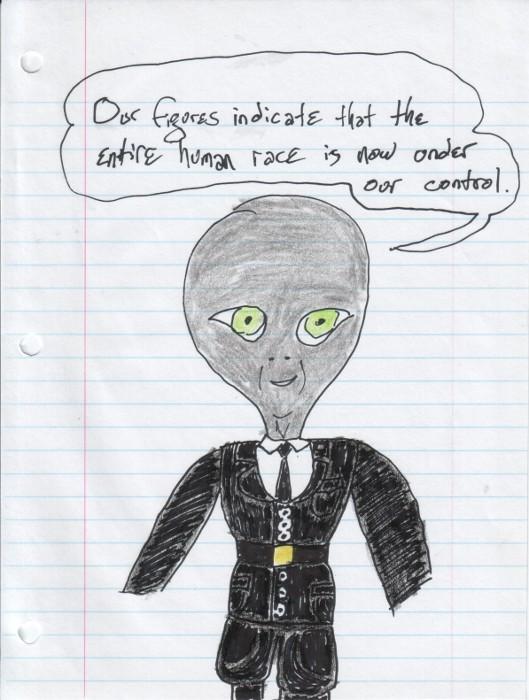 Our figures indicate that the
entire human race is now under
our control.